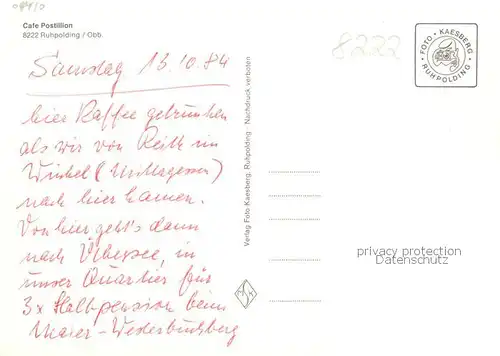 Cafe Postillion
8222 Ruhpolding / Obb.
8222
FOTO · KAESBERG · RUHPOLDING ·
Samstag 13.10.84
hier Kaffee getrunken
als wir von Reith im
Winkel (Mittagessen)
nach hier kamen.
Von hier geht's dann
nach Übersee, in
unser Quartier für
3x Halbpension beim
Maier-Westerbuchberg
Verlag Foto Kaesberg, Ruhpolding · Nachdruck verboten
privacy protection
Datenschutz